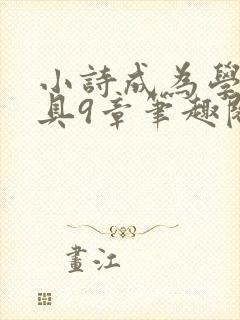 小詩成為學
具9章筆趣閱
畫江